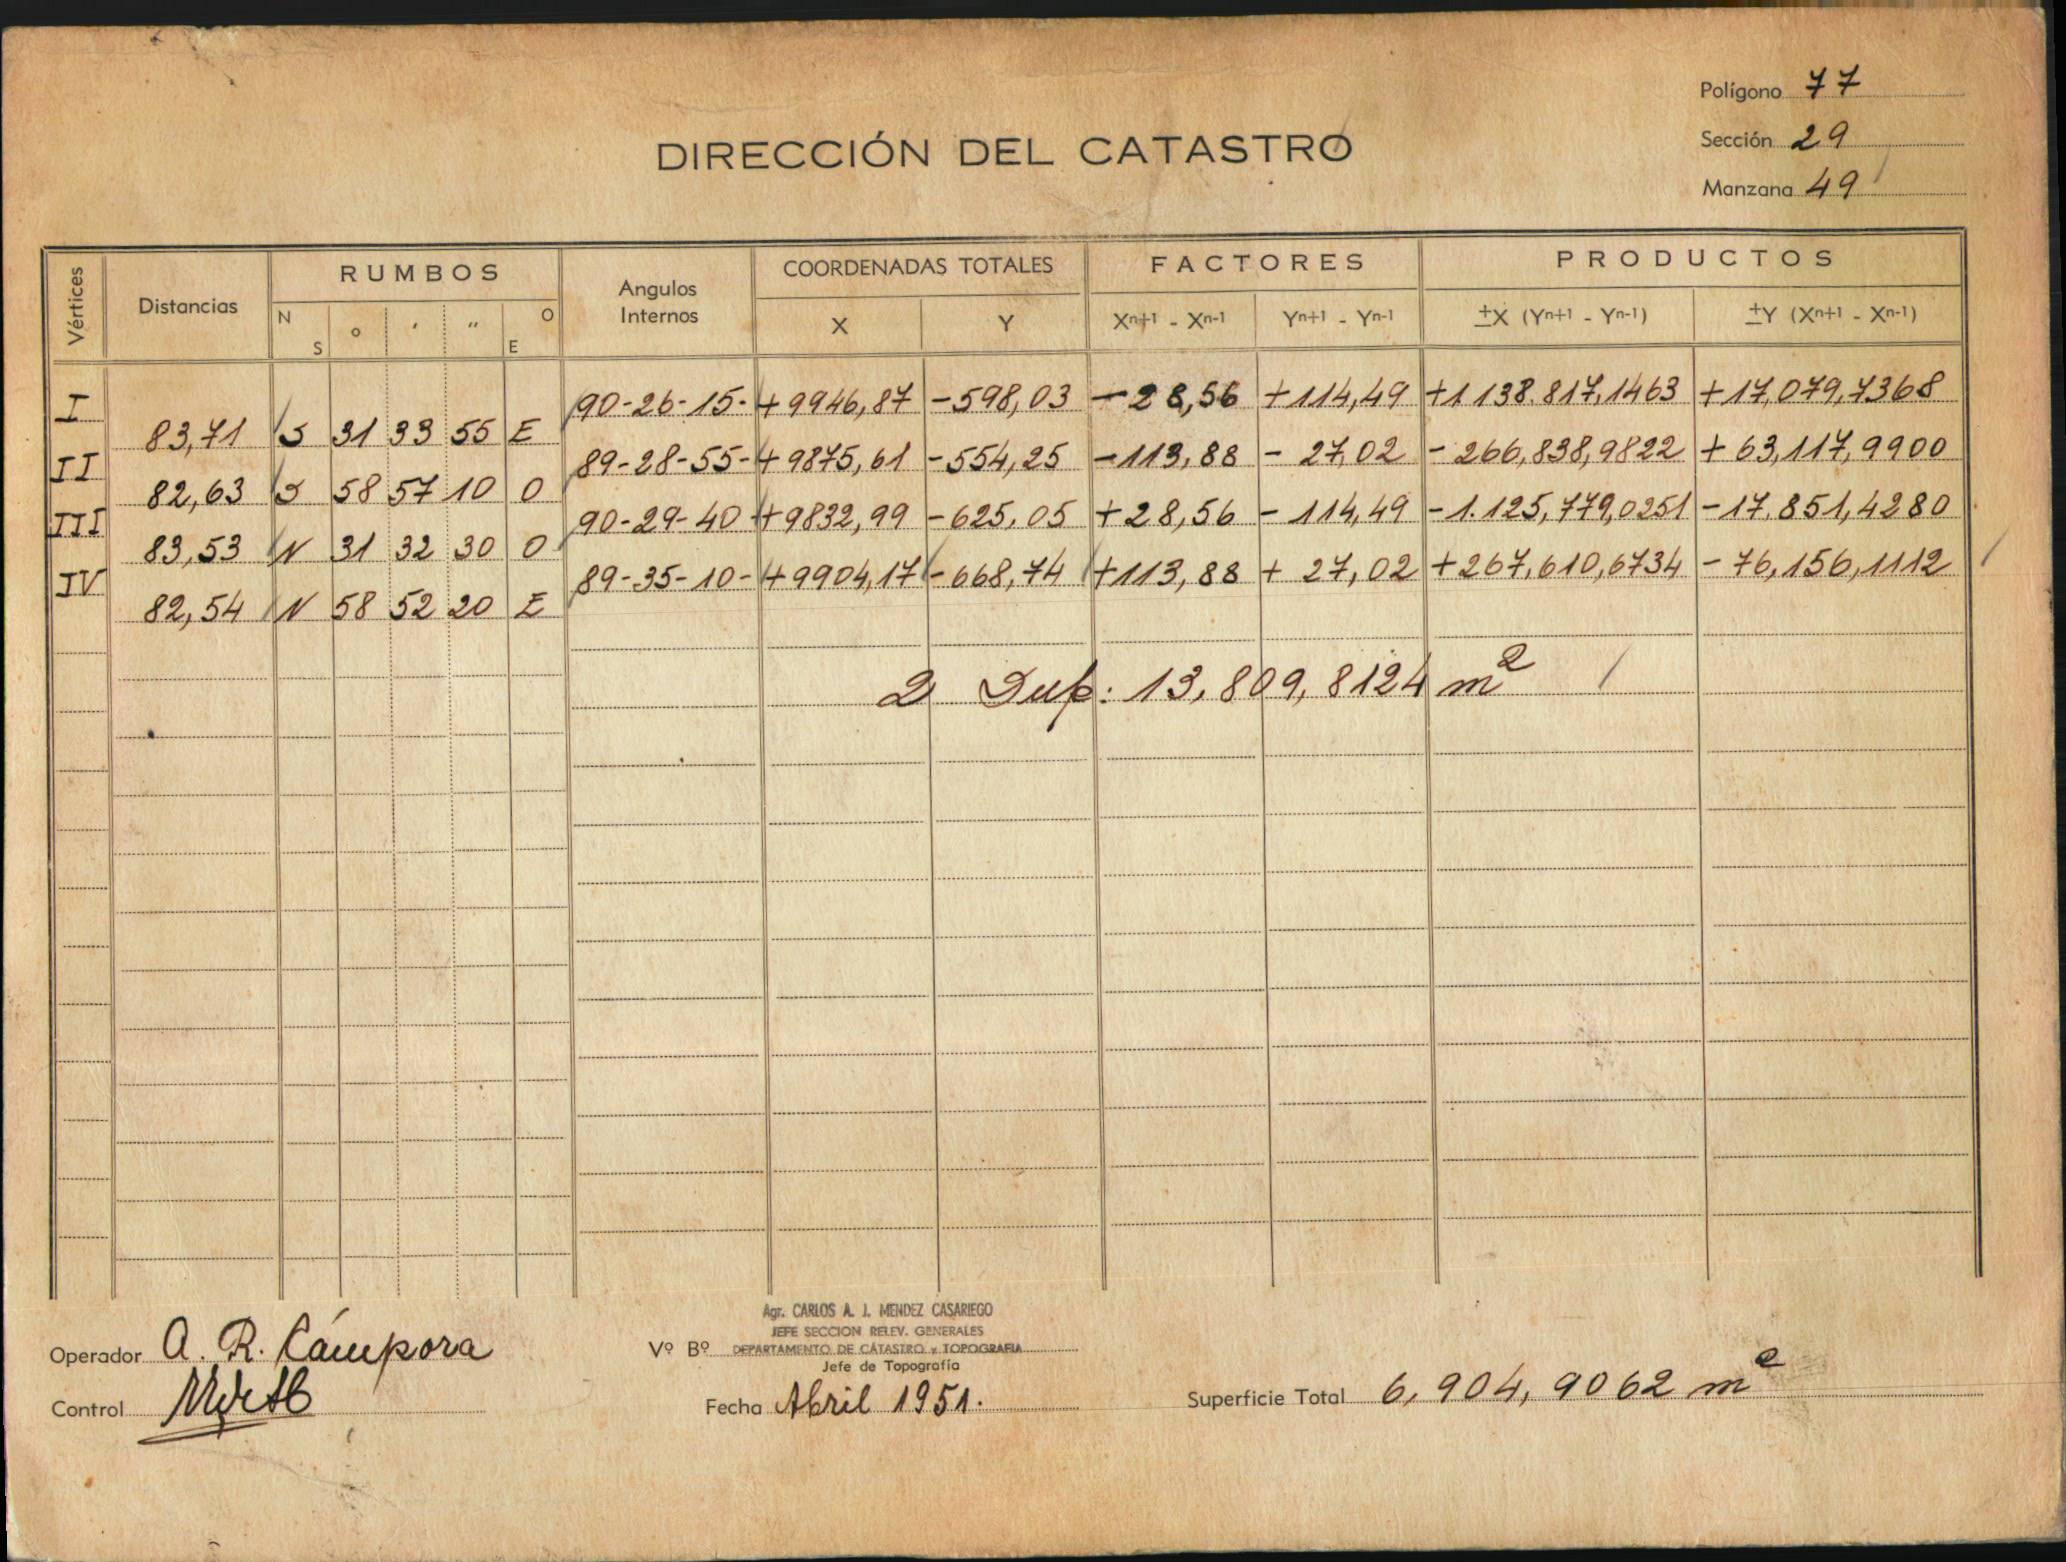 Polígono 77
DIRECCIÓN DEL CATASTRO
Sección 29
Manzana 49
Vértices Distancias RUMBOS Angulos Internos COORDENADAS TOTALES FACTORES PRODUCTOS
N S ° ' " O E X Y Xn+1 - Xn-1 Yn+1 - Yn-1 ±X (Yn+1 - Yn-1) ±Y (Xn+1 - Xn-1)
I 90-26-15- +9946,87 -598,03 -28,56 +114,49 +1138.817,1463 +17,079,7368
83,71 S 31 33 55 E
II 89-28-55- +9875,61 -554,25 -113,88 - 27,02 - 266,838,9822 + 63,117,9900
82,63 S 58 57 10 O
III 90-29-40 +9832,99 -625,05 +28,56 - 114,49 -1.125,779,0251 -17.851,4280
83,53 N 31 32 30 O
IV 89-35-10- +9904,17 -668,74 +113,88 + 27,02 +267,610,6734 - 76,156,1112
82,54 N 58 52 20 E
2 Sup: 13,809,8124 m2
Agr. CARLOS A. J. MENDEZ CASARIEGO
JEFE SECCION RELEV. GENERALES
Operador A. R. Cámpora Vº Bº DEPARTAMENTO DE CATASTRO y TOPOGRAFIA
Jefe de Topografía
Control Fecha Abril 1951. Superficie Total 6,904,9062 m2